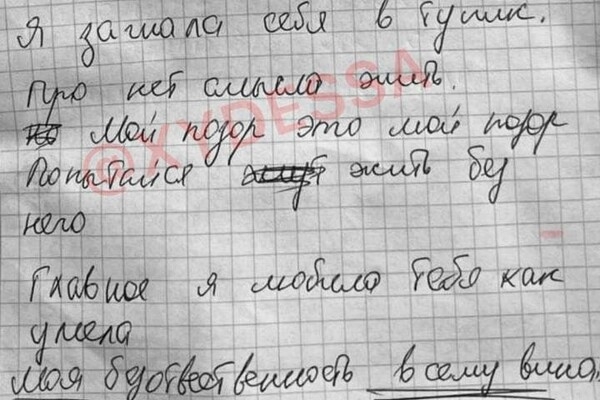 Я загнала себя в тупик.
про нет смысла жить.
Мой позор это мой позор
Попытайся жить без
него
Главное я любила тебя как
умела
Моя безответственность всему вина.
@XYDESSA